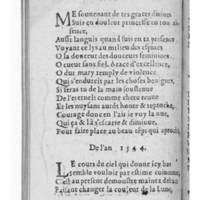 ME souuenant de tes graces diuines
Suis en douleur princesse en ton absence,
Aussi languis quand suis en ta presence
Voyant ce lys au milieu des espines
O la douceur des douceurs feminines
O cueur sans fiel, ô race d'excellence,
O dur mary remply de violence
Qui s'endurcit par les choses benignes,
Si seras tu de la main soustenue
De l'eternel comme chere tenue
Et les nuysans auront honte & reproche,
Courage donc en l'air ie voy la nue,
Qui ça & là s'escarte & diminue,
Pour faire place au beau temps qui approche,
De l'an . 1544.
LE cours du ciel qui donne icy bas
semble vouloir par estime comme,
Cest an present demonstre maint debat
Faisant changer la couleur de la Lune,